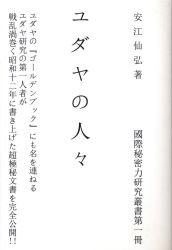 安江仙弘著
國際秘密力研究叢書第一冊
ユダヤの人々
ユダヤの『ゴールデンブック』にも名を連ねる
ユダヤ研究の第一人者が
戦乱渦巻く昭和十二年に書き上げた超極秘文書を完全公開!!